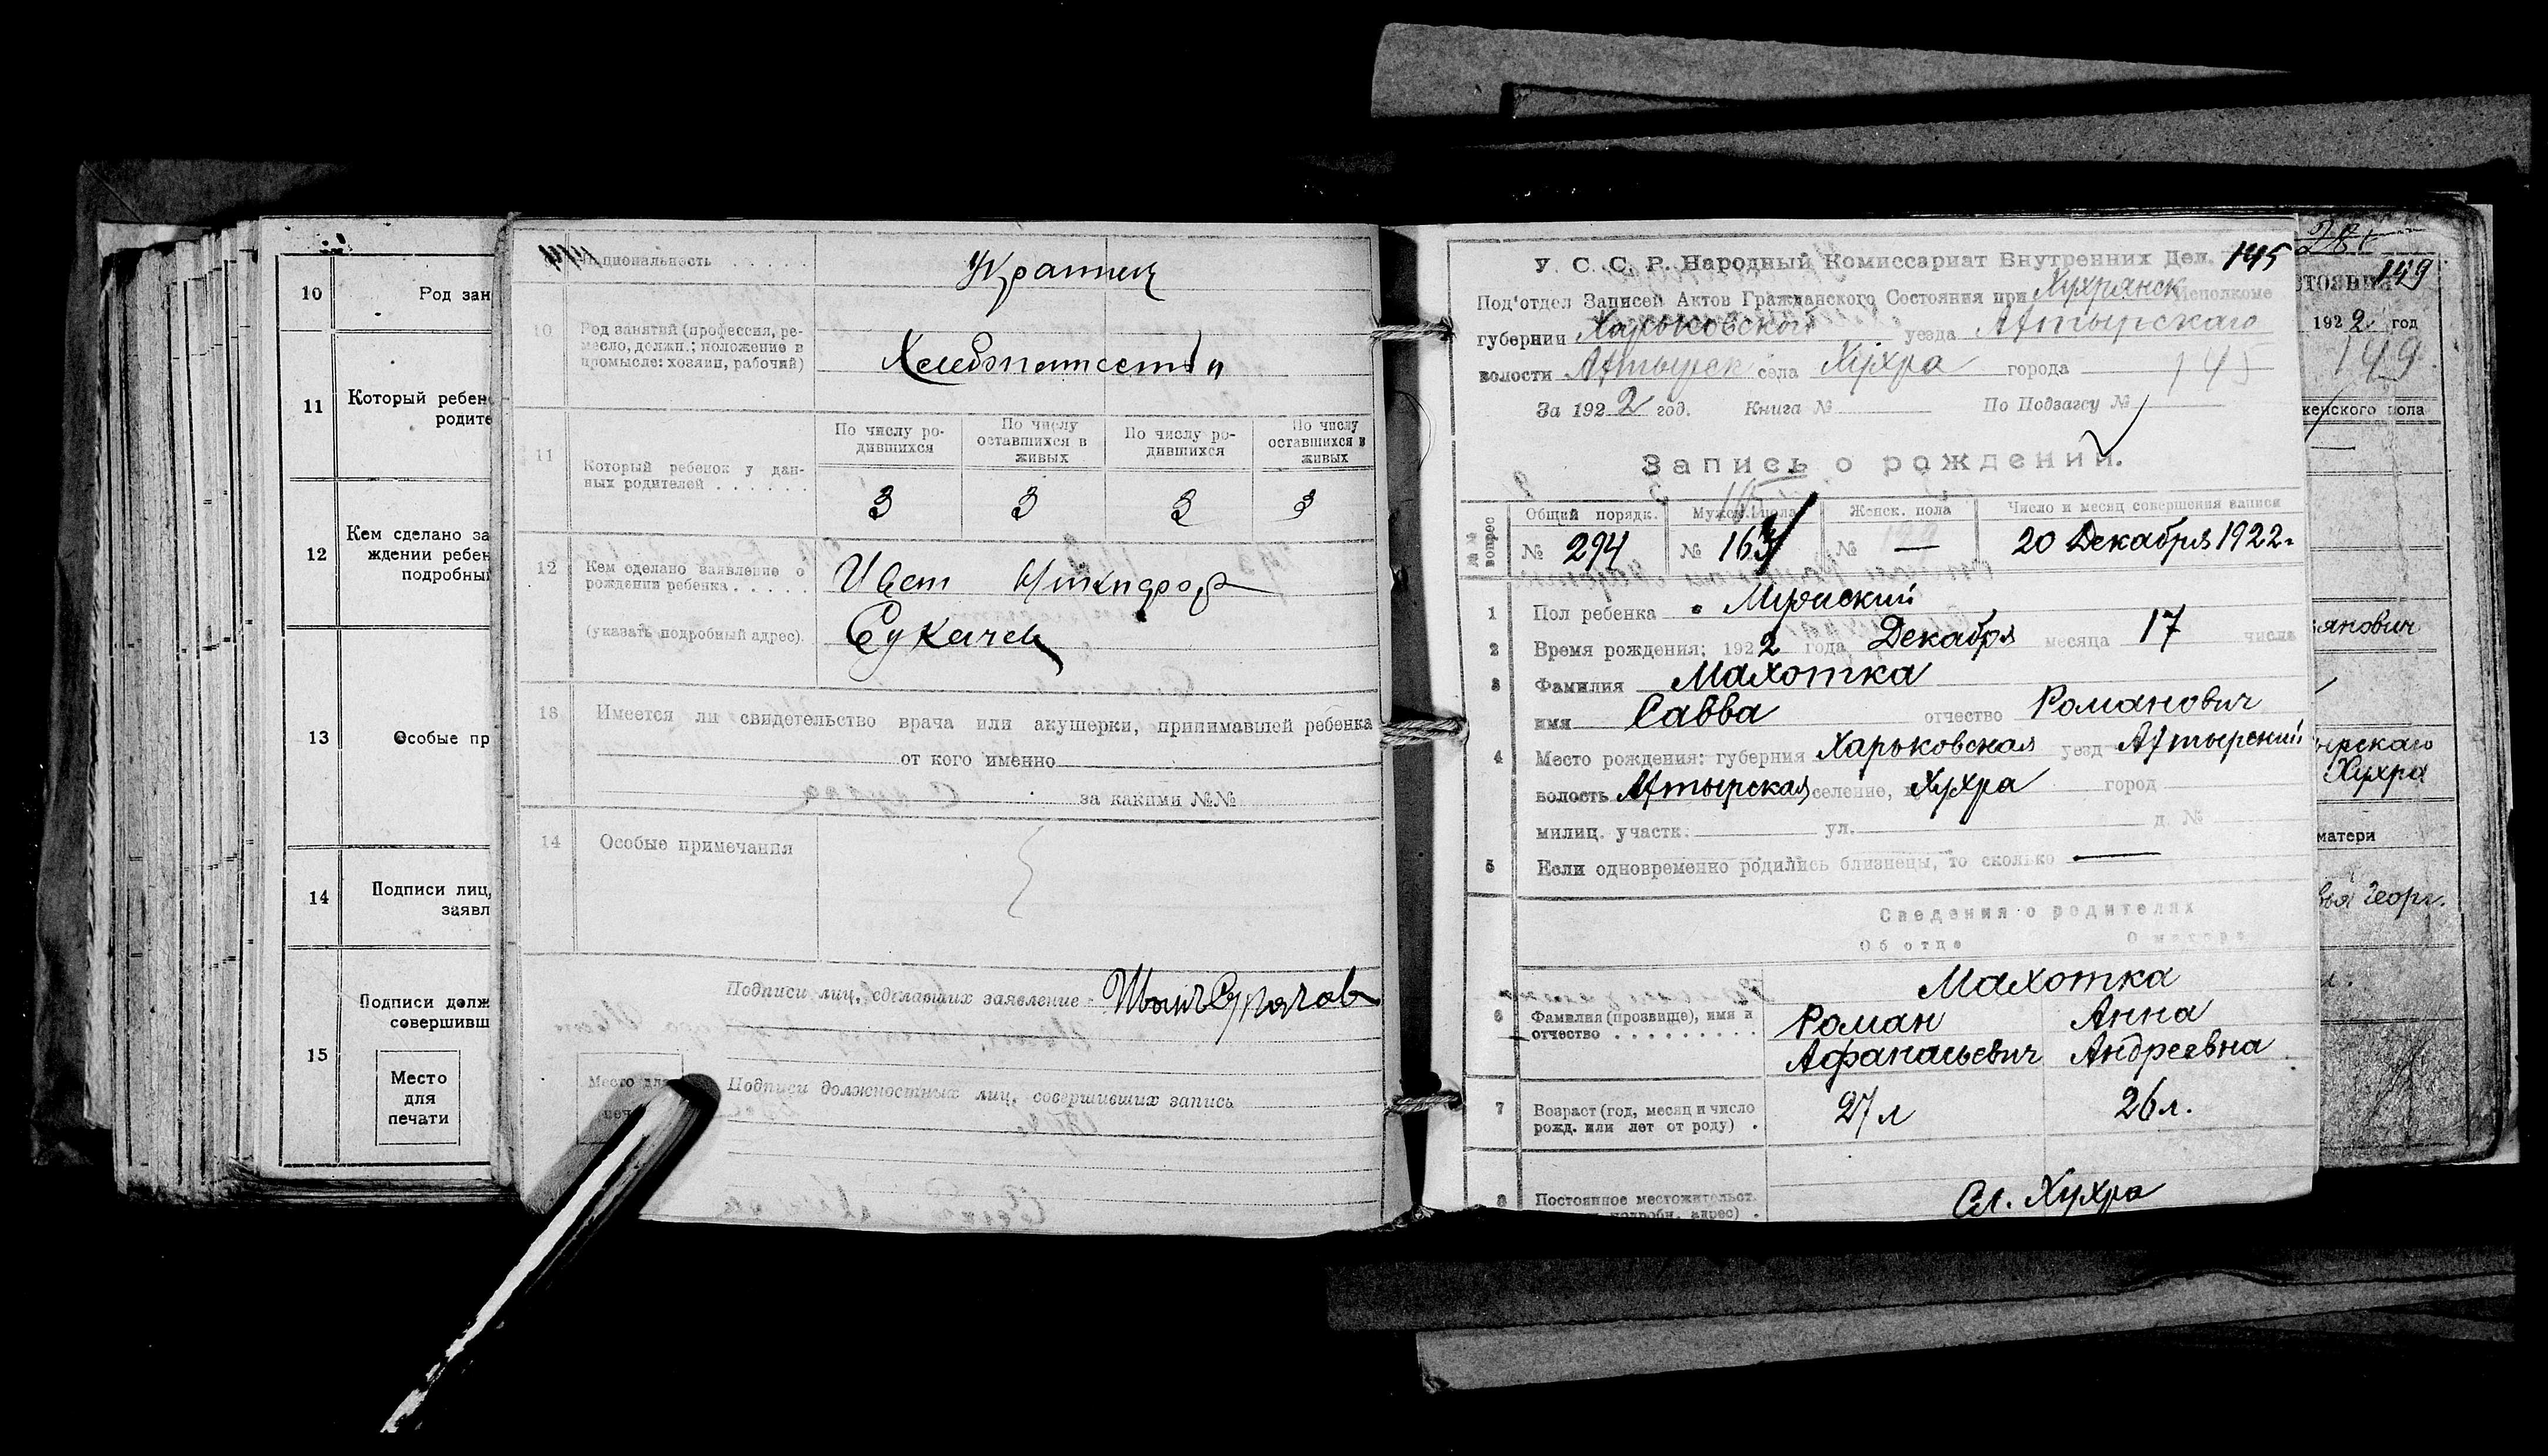 10
Род зан
11
Который ребен
родите
12
Кем сделано за
ждении ребен
подробный
13
Особые пр
14
Подписи лиц,
заявл
15
Подписи долж
совершивш
Место
для
печати
циональность
Украинц
10
Род занятий (профессия, ре-
месло, должн.; положение в
промысле: хозяин, рабочий)
11
Который ребенок у дан-
ных родителей
По числу ро-
дившихся
По числу
оставшихся в
живых
По числу ро-
дившихся
По числу
оставшихся в
живых
3 3 3 3
12
Кем сделано заявление о
рождении ребенка
(указать подробный адрес).
Сукачев
13
Имеется ли свидетельство врача или акушерки, принимавшей ребенка
от кого именно
за какими №№
14
Особые примечания
Подписи лиц, сделавших заявление
Место для
печ
Подписи должностных лиц, совершивших запись
У. С. С. Р. Народный Комиссариат Внутренних Дел. 145
Под'отдел Записей Актов Гражданского Состояния при Хухрянск Исполкоме
губернии Харьковской уезда Ахтырскаго
волости Ахтырск села Хухра города 145
За 1922 год. Книга № По Подзагсу №
Запись о рождении.
№№ вопрос
Общий порядк. Мужск. пола Женск. пола Число и месяц совершения записи
№ 294 № 163 № — 20 Декабря 1922.
1 Пол ребенка Мужский
2 Время рождения: 1922 года Декабря месяца 17 числа
3 Фамилия Махотка
имя Савва отчество Романович
4 Место рождения: губерния Харьковская уезд Ахтырский
волость Ахтырская селение, Хухра город
милиц. участк. ул. д. №
5 Если одновременно родились близнецы, то сколько —
Сведения о родителях
Об отце О матери
Махотка
6 Фамилия (прозвище), имя и
отчество
Роман Анна
Афанасьевич Андреевна
7 Возраст (год, месяц и число
рожд. или лет от роду) .
27 л 26 л.
8 Постоянное местожительст.
подробн. адрес) .
Сл. Хухра
149
стояния
1922 год
149
женского пола
янович
ырскаго
Хухра
матери
Георг.